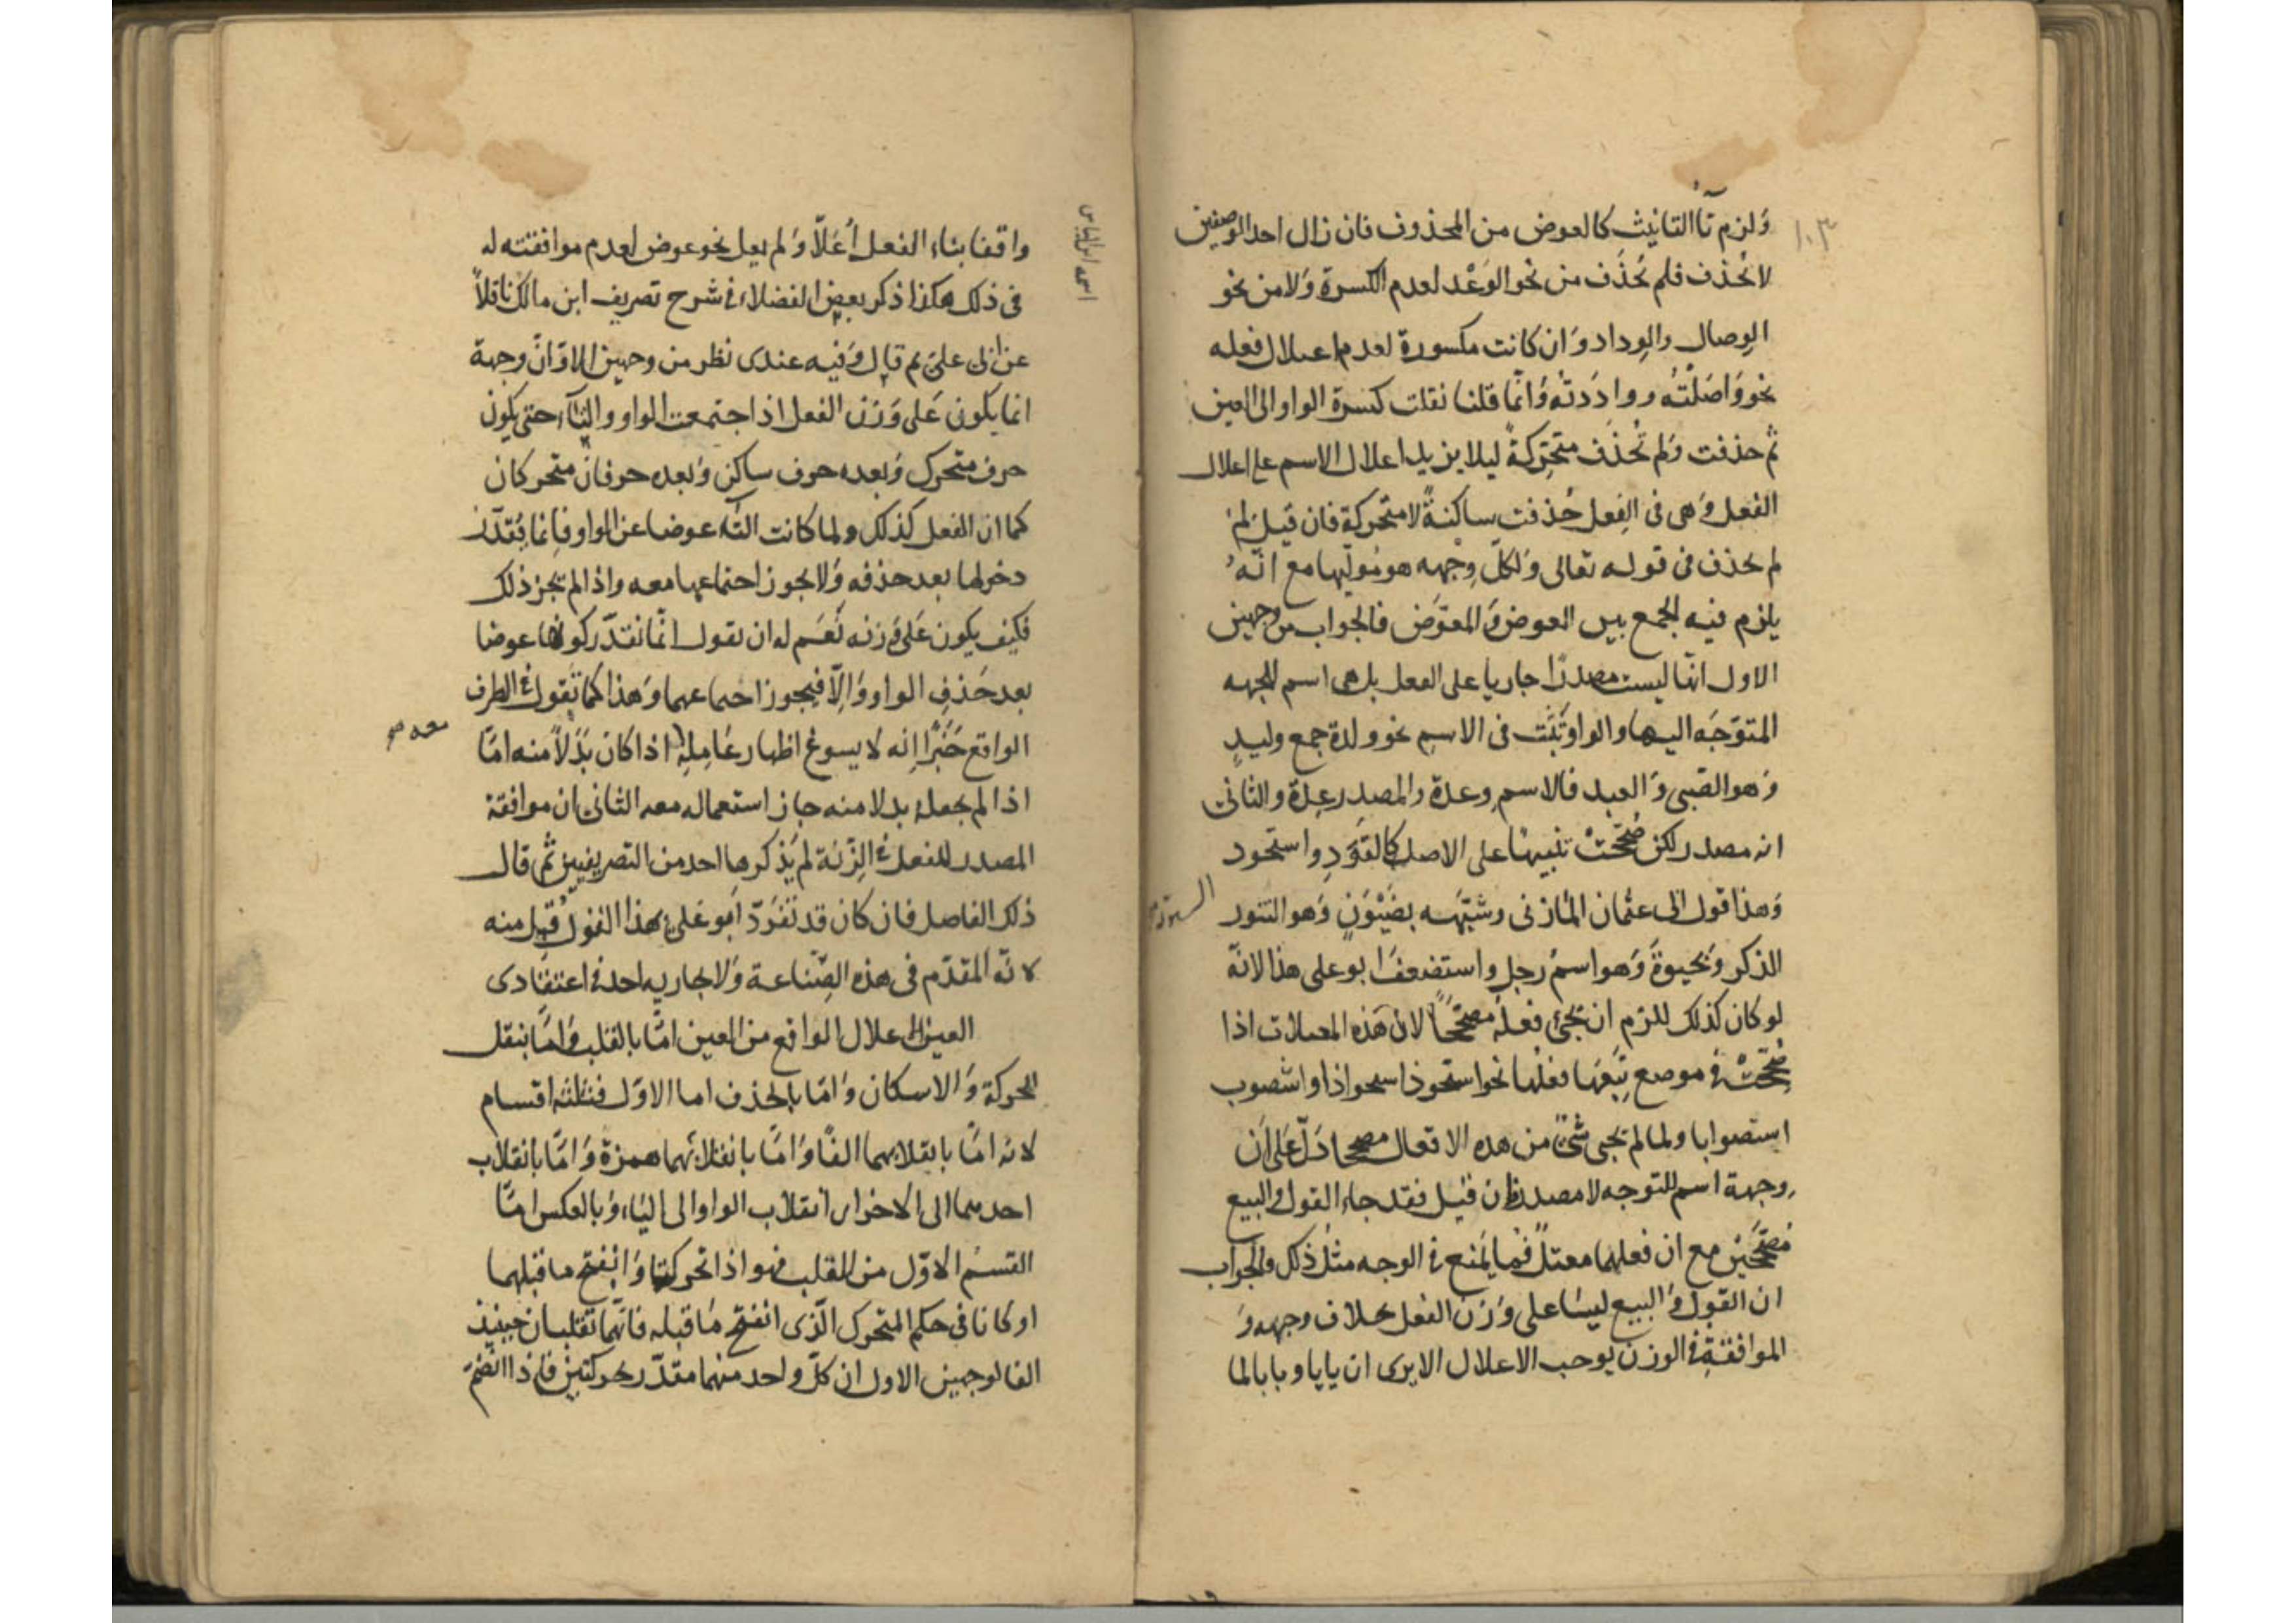 ١٠٣
وَلزم تآ التانيث كالعوض من المحذوف فان زال احد الوصفين
لا تحذف فلم تُحذَف من نحو الوَعْد لعدم الكسرة وَلا من نحو
الوِصال والوِداد وَان كانت مكسورة لعدم اعلال فعله
نحو وَاصَلْتُه ووادَدتُه وَانّما قلنا نقلت كسرة الواو الى العين
ثم حذفت وَلم تُحذَف متحَرِّكةً ليلا يزيد اعلال الاسم على اعلال
الفعل وَهى فى الفِعل حُذفت ساكنةً لا متحركة فان قيل لِمَ
لم تحذف فى قوله تعالى وَلكلّ وِجْهه هو مُولّيها مع انّهُ
يلزم فيه الجمع بين العوض وَالمعوّض فالجواب من وجهين
الاول انّها ليست مصدرًا جاريا على الفعل بل هى اسم للجهه
المتوَجَّه اليها والواو تثبت فى الاسم نحو ولدة جمع وليدٍ
وَهو الصّبى وَالعبد فالاسم وعدة والمصدر عِدة والثانى
انه مصدر لكن صُحّحَتْ تنبيها على الاصل كالقَوَدِ واستحوذ
وَهذا قول ابى عثمان المازنى وشبّهه بضَيْوَنٍ وَهو السّنور
الذكر وَبحيوةَ وَهو اسمُ رجل واستضعفَ ابو على هذا لانّه
لو كان كذلك للزم ان يجئ فعلُه مصحّحًا لانّ هَذه المعتلات اذا
صُحّحتْ فى موضع تبعَها فعلُها نحو استحوذ استحواذا واستصوب
استصوابا ولما لم يجى شئ من هده الافعال مصححا دَلّ عَلى اَنّ
وِجهة اسم للتوجه لا مصدر فان قيل فقد جاء القول والبيع
مُصَحّحَيْن مع ان فعلهما معتلّ فما يمنع فى الوجه مثلُ ذلك والجواب
ان القول وَالبيع ليسَا على وَزن الفعل بخلاف وجهه وَ
الموافقةِ فى الوزن يوجب الاعلال الا يرى ان بابا وبابا لما
اسمه ابن اياس
وافقا بناء الفعل اُعَلّا وَلم يعل نحو عوض لعدم موافقته له
فى ذلك هكذا ذكر بعض الفضلاء فى شرح تصريف ابن مالك ناقلاً
عن ابى على ثم قال وَفيه عندى نظر من وجهين الاوّل انّ وجهة
انما يكون عَلى وَزن الفعل اذا اجتمعت الواو والتآء حتى يكون
حرف متحرك وَبعده حرف ساكن وَبعده حرفان متحركان
كما ان الفعل كذلك ولما كانت التاء عوضا عن الواو فانما يُقدّر
دخولها بعد حذفه وَلا يجوز اجتماعها معه واذا لم يجز ذلك
فكيف يكون عَلى وَزنه نَعَم له ان يقول انّما نقدّر كونها عوضا
بعد حَذفِ الواو وَاِلّا فيجوز اجتماعهما وَهذا كما تَقول فى الظرف
الواقع خَبَرًا اِنّه لا يسوغ اظهار عَامِلِه معه اذا كان بَدَلاً منه امّا
اذا لم يجعل بدلا منه جاز استعماله معه الثانى ان موافقة
المصدر للفعل فى الزِّنَة لم يَذكرها احد من التصريفيين ثم قال
ذلك الفاضل فان كان قد تفَرّدَ اَبو عَلى بهذا القول قُبِل منه
لانّه المقدّم فى هذه الصّناعة وَلا يجاريه احد فى اعتقادى
العين الاعلال الواقع من العين امّا بالقلب وَامّا بنقل
الحركة وَالاسكان وَامّا بالحذف اما الاوّل فثلثة اقسام
لانه امّا بانقلابهما الفًا وَامّا بانقلابهما همزة وَامّا بانقلاب
احديهما الى الاخرى انقلاب الواو الى الياء وَبالعكس امّا
القسمُ الاوّل من القلب فهو اذا تحركتا وَانفتح ما قبلهما
او كانا فى حكم المتحرك الّذى انفتح مَا قبله فانّهما تقلبان حينيذ
الفا لوجهين الاول ان كلّ واحد منهما مقدّر بحركتين فاذا انضمَّ